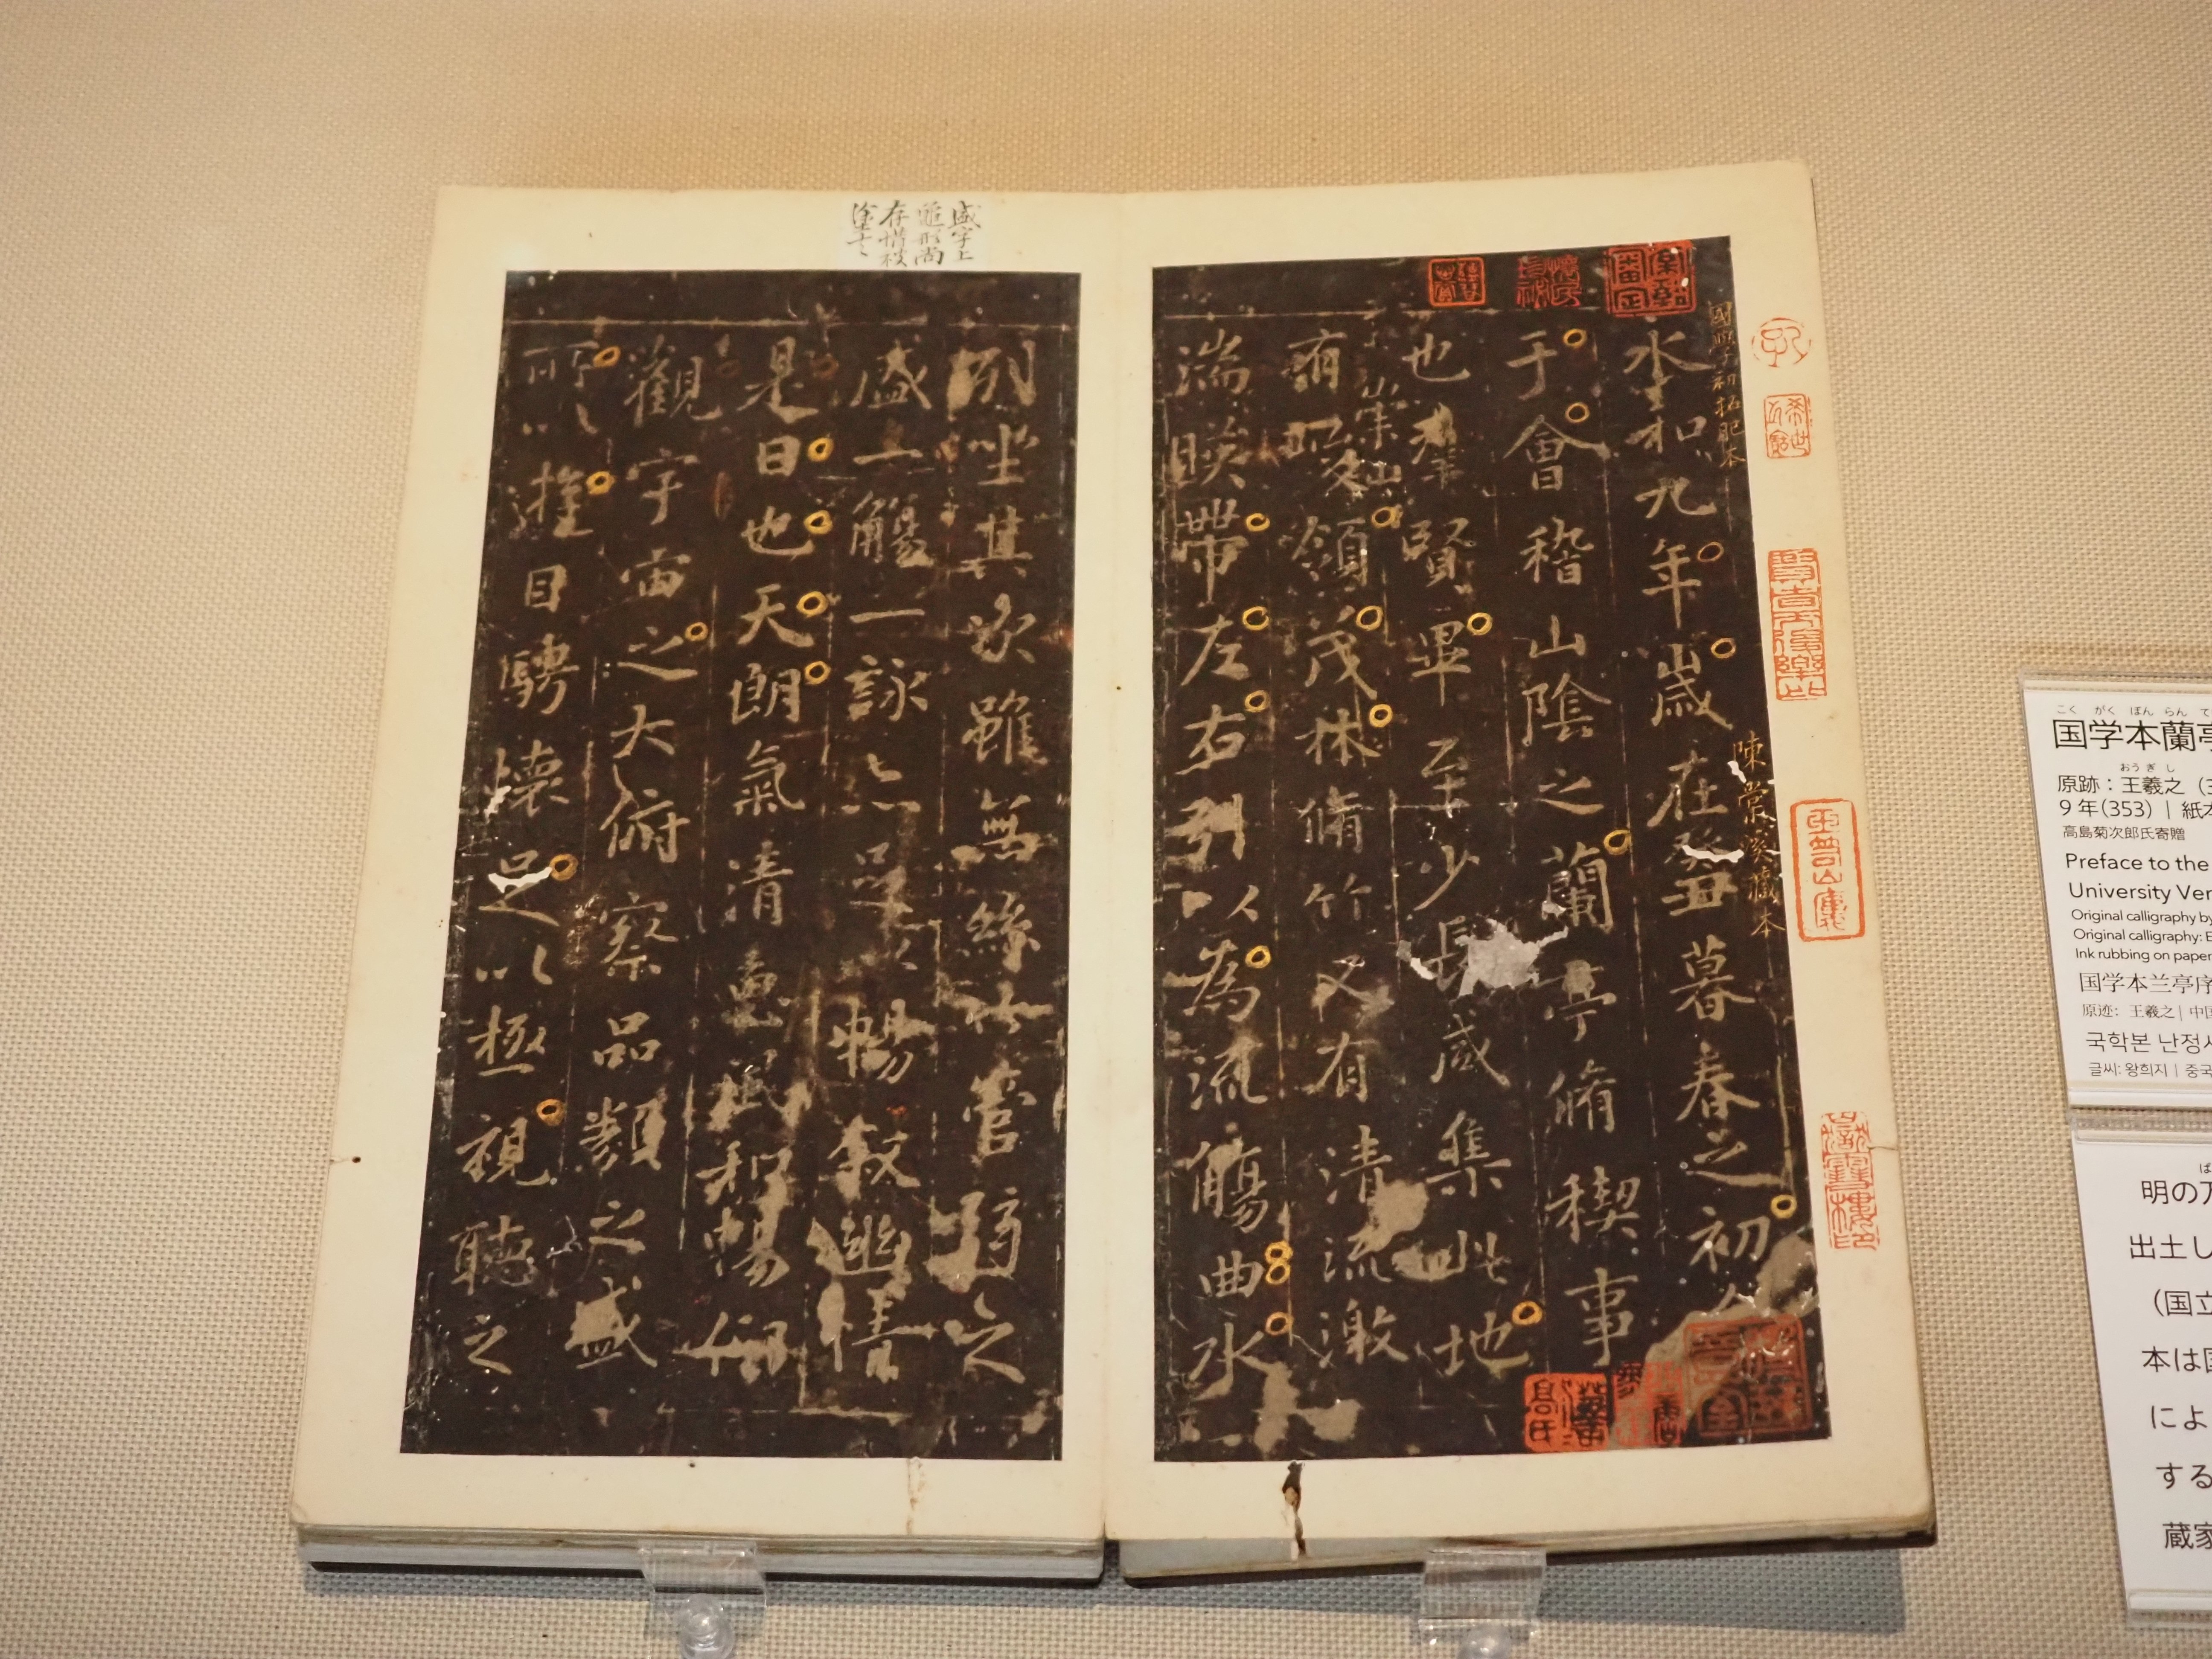 永和九年歲在癸丑暮春之初
于會稽山陰之蘭亭脩稧事
也羣賢畢至少長咸集此地
有峻領茂林脩竹又有清流激
崇山
湍暎帶左右引以為流觴曲水
列坐其次雖無絲竹管弦之
盛一觴一詠亦足以暢敘幽情
是日也天朗氣清惠風和暢仰
觀宇宙之大俯察品類之盛
所以遊目騁懷足以極視聽之
國學初拓肥本
陳裳溪藏本
盛字上
龜形尚
存惜被
塗去
晉唐
高氏
こくがくぼんらんて
国学本蘭亭
おうぎし
原跡：王羲之（3
9年(353)｜紙本
高島菊次郎氏寄贈
Preface to the
University Ver
Original calligraphy by
Original calligraphy: E
Ink rubbing on paper
国学本兰亭序
原迹：王羲之｜中国
국학본 난정서
글씨: 왕희지｜중국
明の万
出土し
（国立
本は国
によ
する
蔵家